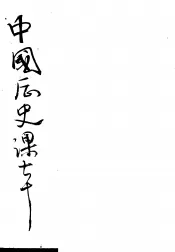 中國历史课本